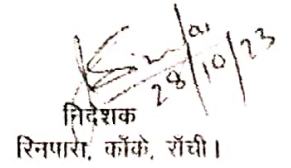 28/10/23
निदेशक
रिनपास, काँके, राँची।